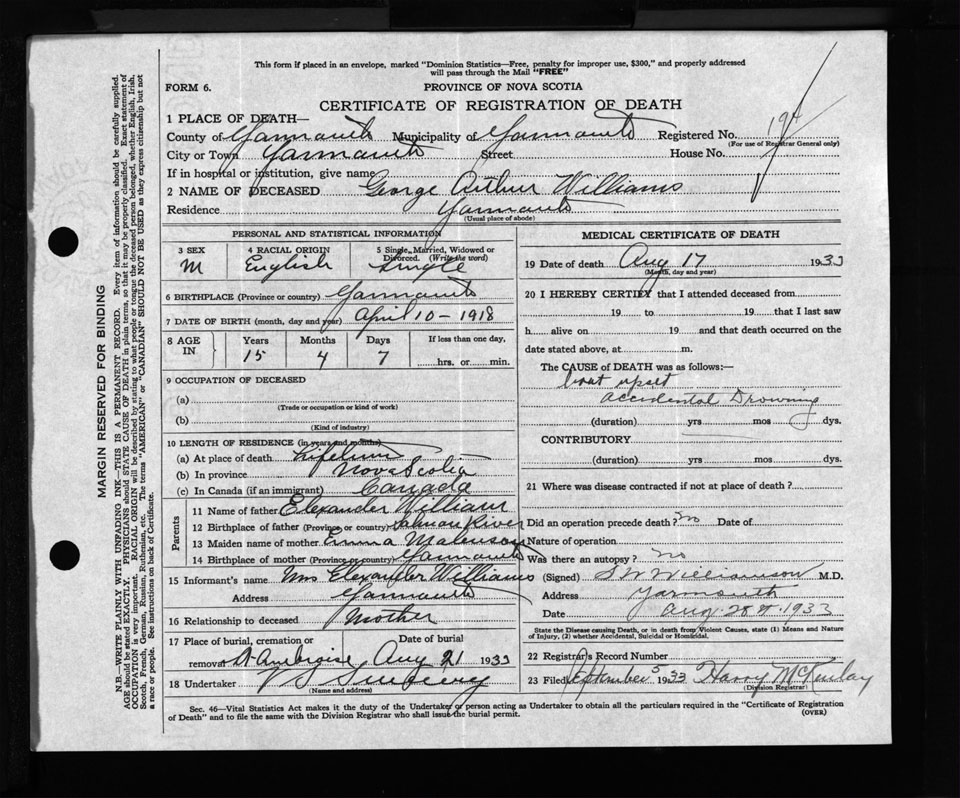 This form if placed in an envelope, marked "Dominion Statistics—Free, penalty for improper use, $300," and properly addressed
will pass through the Mail "FREE"
FORM 6. PROVINCE OF NOVA SCOTIA
CERTIFICATE OF REGISTRATION OF DEATH
1 PLACE OF DEATH—
County of Yarmouth Municipality of Yarmouth Registered No. 194
(For use of Registrar General only)
City or Town Yarmouth Street House No.
If in hospital or institution, give name
2 NAME OF DECEASED George Arthur Williams
Residence Yarmouth
(Usual place of abode)
PERSONAL AND STATISTICAL INFORMATION
3 SEX 4 RACIAL ORIGIN 5 Single, Married, Widowed or
Divorced. (Write the word)
M English Single
6 BIRTHPLACE (Province or country) Yarmouth
7 DATE OF BIRTH (month, day and year) April 10 - 1918
8 AGE IN Years Months Days If less than one day,
15 4 7 hrs. or min.
9 OCCUPATION OF DECEASED
(a)
(Trade or occupation or kind of work)
(b)
(Kind of industry)
10 LENGTH OF RESIDENCE (in years and months)
(a) At place of death Lifetime
(b) In province Nova Scotia
(c) In Canada (if an immigrant) Canada
Parents
11 Name of father Elexander William
12 Birthplace of father (Province or country) Salmon River
13 Maiden name of mother Emma
14 Birthplace of mother (Province or country) Yarmouth
15 Informant's name Mrs Elexander Williams
Address Yarmouth
16 Relationship to deceased Mother
17 Place of burial, cremation or Date of burial
removal St Ambroise Aug 21 1933
18 Undertaker V S Sweeny
(Name and address)
MEDICAL CERTIFICATE OF DEATH
19 Date of death Aug 17 1933
(Month, day and year)
20 I HEREBY CERTIFY that I attended deceased from
19 to 19 that I last saw
h alive on 19 and that death occurred on
date stated above, at m.
The CAUSE of DEATH was as follows:—
boat upset
accidental Drowning
(duration) yrs mos dys.
CONTRIBUTORY
(duration) yrs mos dys.
21 Where was disease contracted if not at place of death?
Did an operation precede death? no Date of
Nature of operation
Was there an autopsy? no
(Signed) S W Williamson M.D.
Address Yarmouth
Date Aug. 28th 1933
State the Disease causing Death, or in death from Violent Causes, state (1) Means and Nature
of Injury, (2) whether Accidental, Suicidal or Homicidal.
22 Registrar's Record Number
23 Filed September 5 1933 Harry McKinlay
(Division Registrar)
Sec. 46—Vital Statistics Act makes it the duty of the Undertaker or person acting as Undertaker to obtain all the particulars required in the "Certificate of Registration
of Death" and to file the same with the Division Registrar who shall issue the burial permit. (OVER)
MARGIN RESERVED FOR BINDING
N.B.—WRITE PLAINLY WITH UNFADING INK—THIS IS A PERMANENT RECORD. Every item of information should be carefully supplied.
AGE should be stated EXACTLY. PHYSICIANS should STATE CAUSE OF DEATH in plain terms, so that it may be properly classified. Exact statement of
OCCUPATION is very important. RACIAL ORIGIN will be described by stating to what people or tongue the deceased person belonged, whether English, Irish,
Scotch, French, German, Russian, Ruthenian, etc. The terms "AMERICAN" or "CANADIAN" SHOULD NOT BE USED as they express citizenship but not
a race or people. See instructions on back of Certificate.